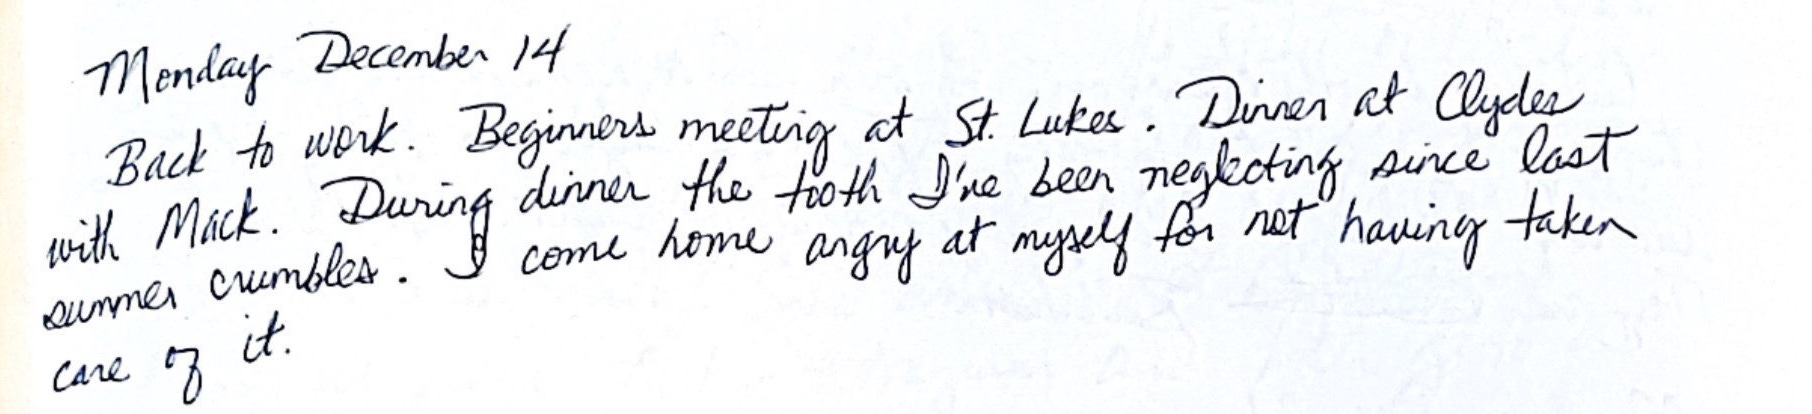 Monday December 14
Back to work. Beginners meeting at St. Lukes. Dinner at Clydes
with Mack. During dinner the tooth I've been neglecting since last
summer crumbles. I come home angry at myself for not having taken
care of it.